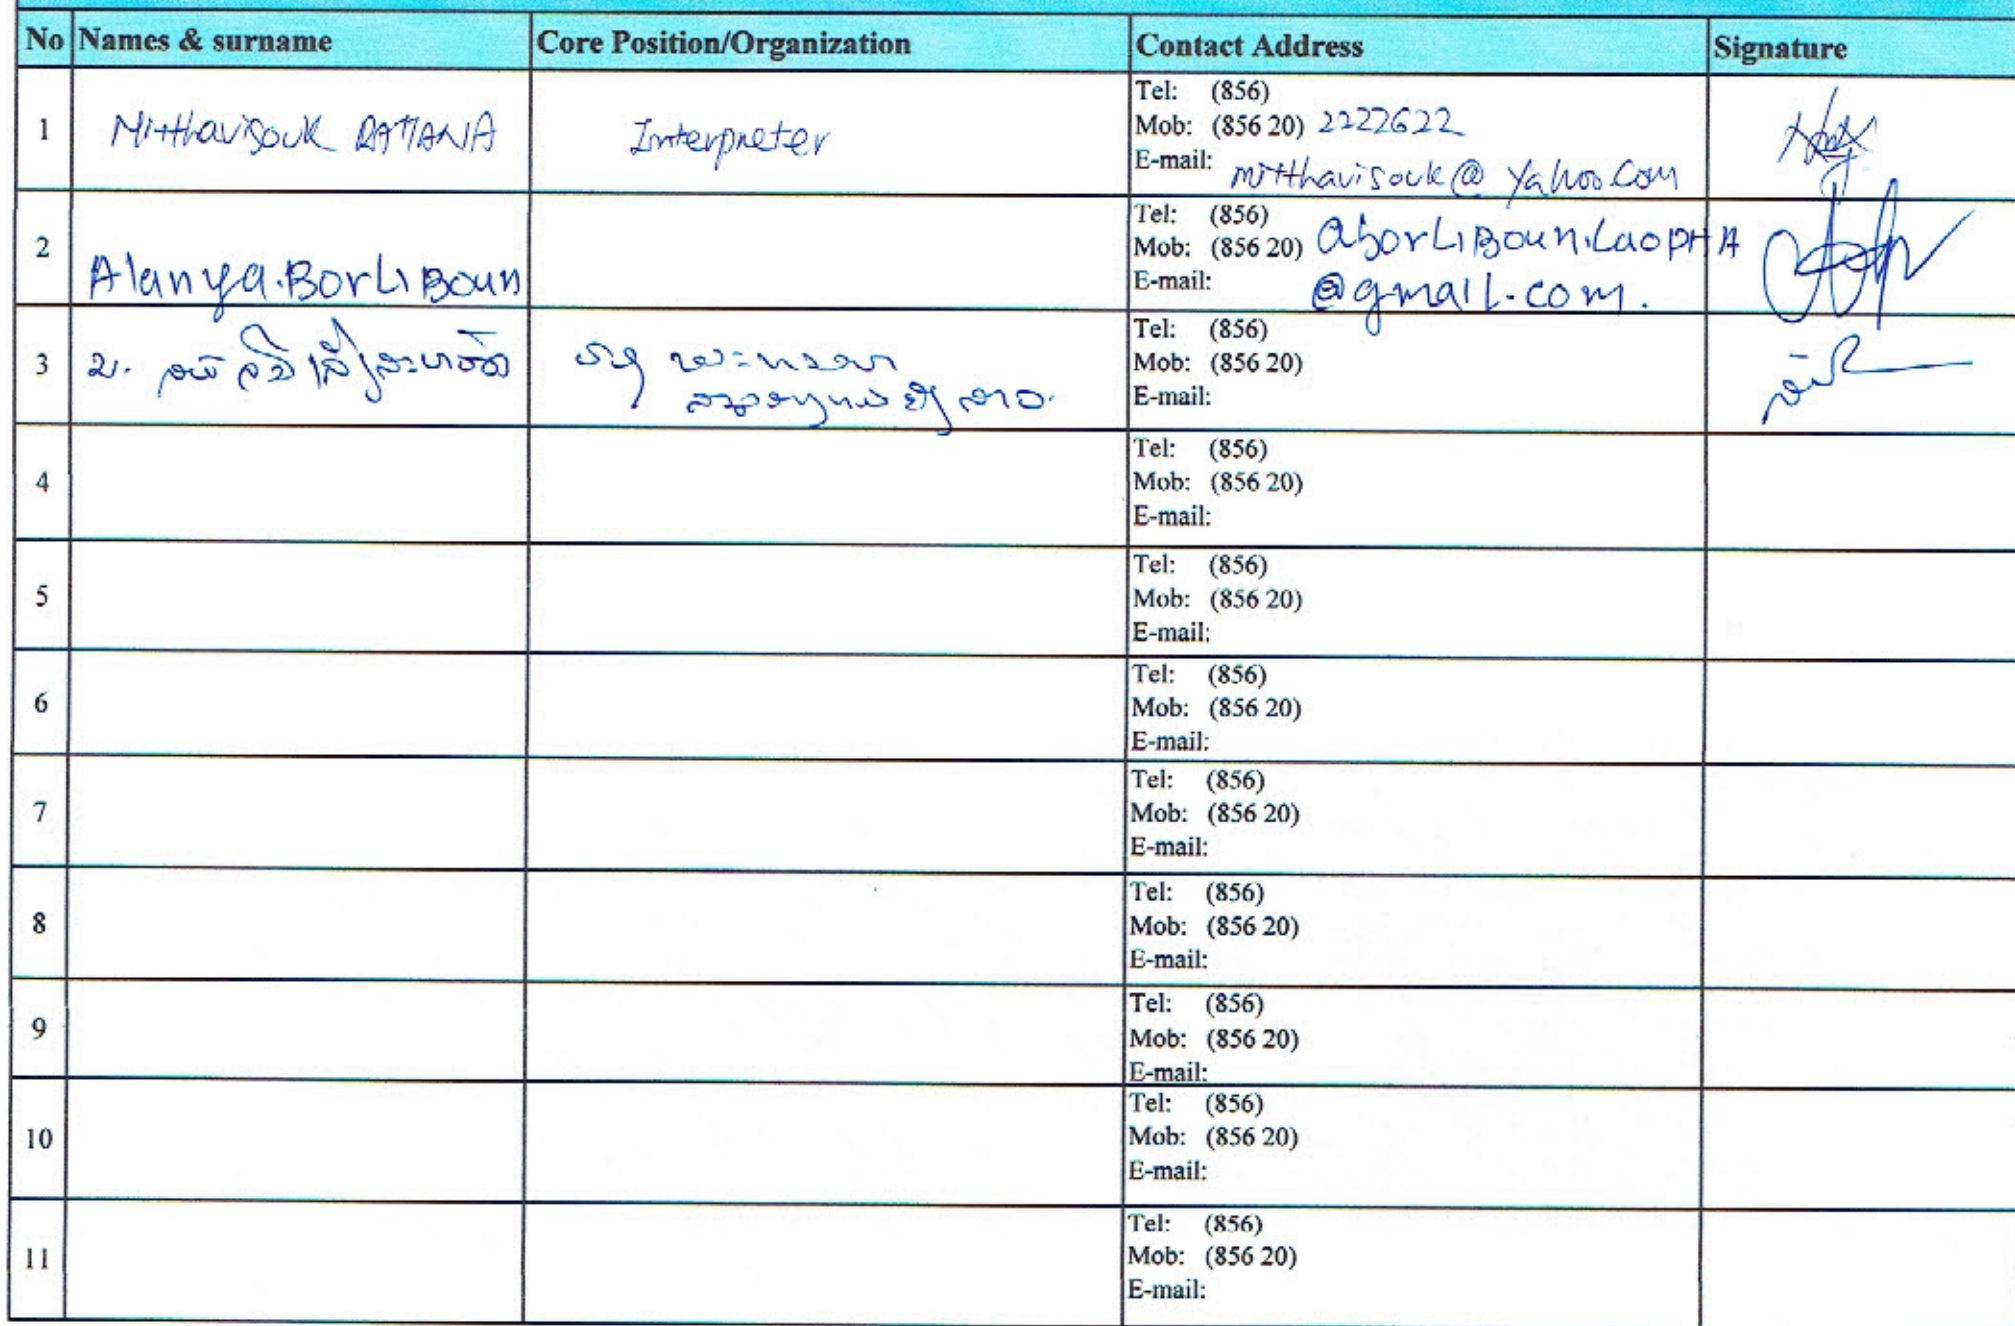 No Names & surname Core Position/Organization Contact Address Signature
1 Mitthavisouk RATTANA Interpreter
Tel: (856)
Mob: (856 20) 2222622
E-mail: mitthavisouk@yahoo.com
2 Alanya.BorLiBoun
Tel: (856)
Mob: (856 20) aborLiBoun.LaopHA
E-mail: @gmail.com.
3
Tel: (856)
Mob: (856 20)
E-mail:
4
Tel: (856)
Mob: (856 20)
E-mail:
5
Tel: (856)
Mob: (856 20)
E-mail:
6
Tel: (856)
Mob: (856 20)
E-mail:
7
Tel: (856)
Mob: (856 20)
E-mail:
8
Tel: (856)
Mob: (856 20)
E-mail:
9
Tel: (856)
Mob: (856 20)
E-mail:
10
Tel: (856)
Mob: (856 20)
E-mail:
11
Tel: (856)
Mob: (856 20)
E-mail: